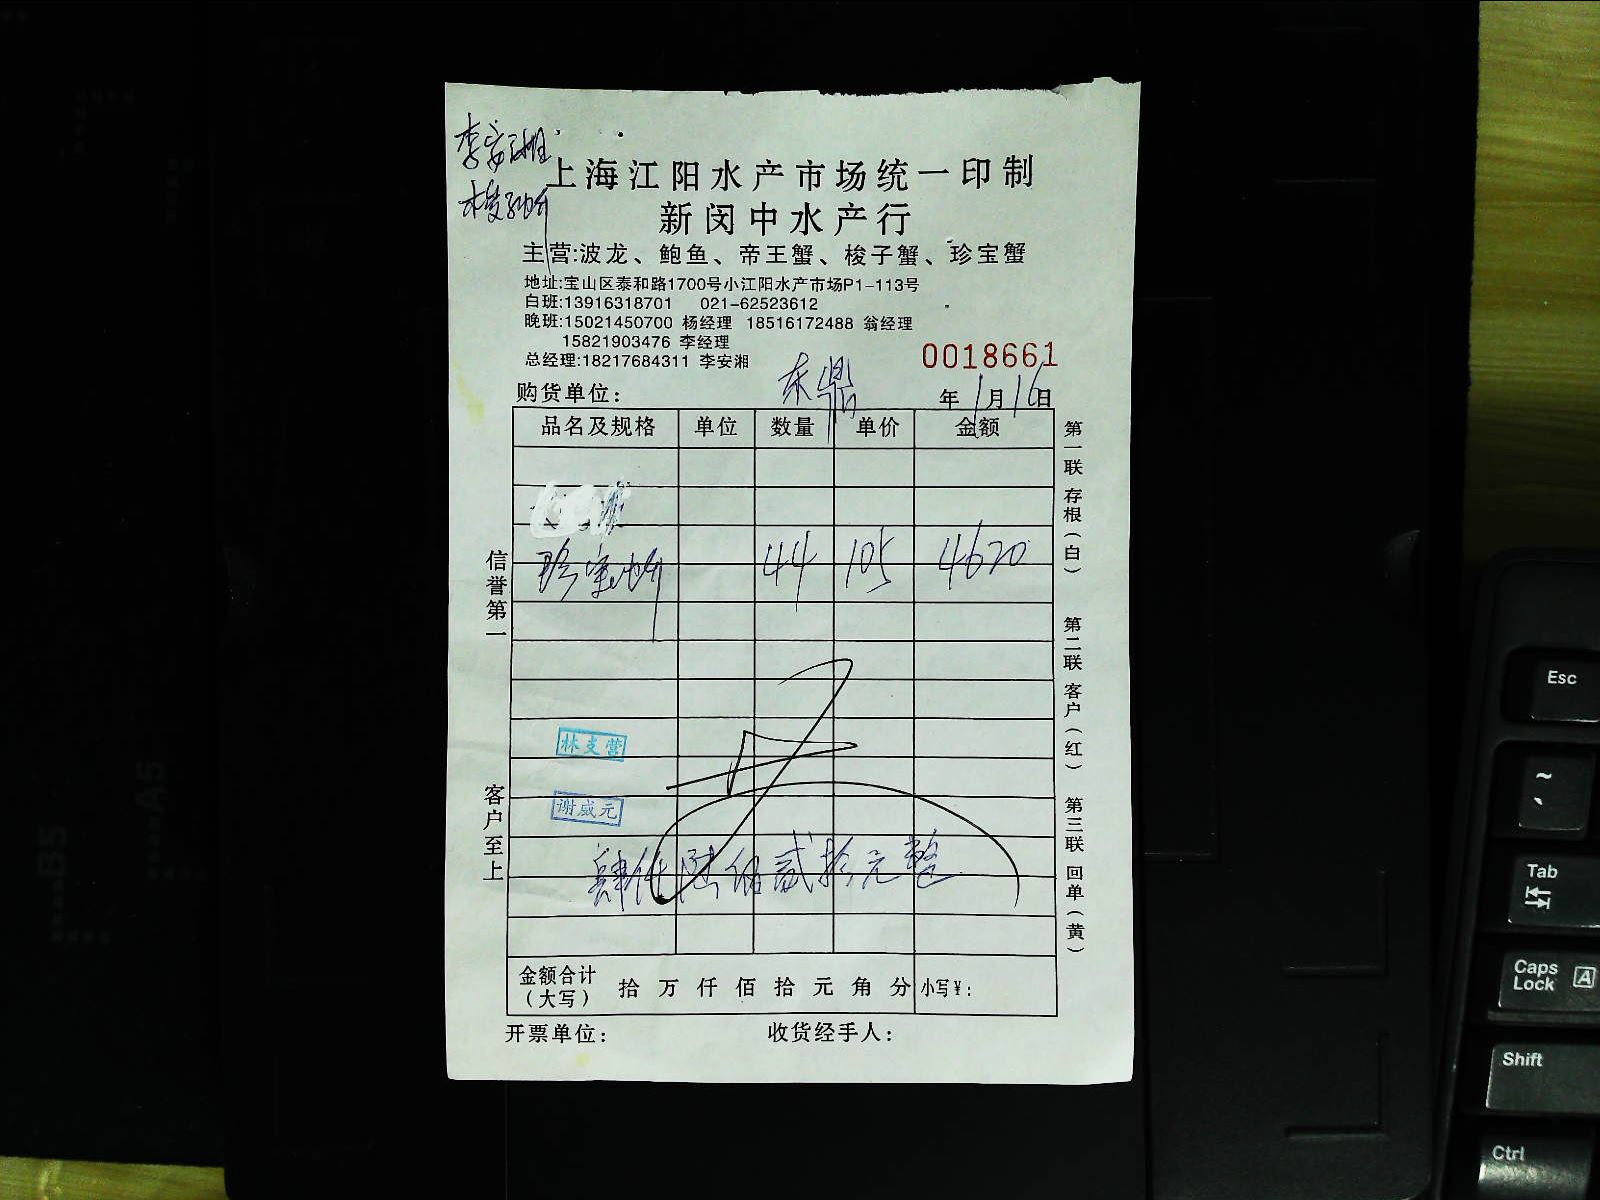 上海江阳水产市场统一印制
新闵中水产行
主营:波龙、鲍鱼、帝王蟹、梭子蟹、珍宝蟹
地址:宝山区泰和路1700号小江阳水产市场P1-113号
白班:13916318701 021-62523612
晚班:15021450700 杨经理 18516172488 翁经理
15821903476 李经理
总经理:18217684311 李安湘
0018661
购货单位: 东鼎 年 1月16日
品名及规格 单位 数量 单价 金额
珍宝 44 105 4620
林支营
谢成元
肆仟陆佰贰拾元整
金额合计
(大写) 拾 万 仟 佰 拾 元 角 分 小写¥:
开票单位: 收货经手人:
信誉第一
客户至上
第一联 存根(白)
第二联 客户(红)
第三联 回单(黄)
B5
A5
Esc
~
Tab
Caps Lock A
Shift
Ctrl